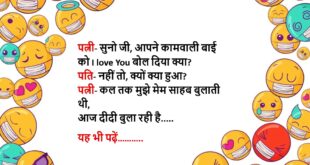 पत्नी- सुनो जी, आपने कामवाली बाई
को I love You बोल दिया क्या?
पति- नहीं तो, क्यों क्या हुआ?
पत्नी- कल तक मुझे मेम साहब बुलाती
थी,
आज दीदी बुला रही है.....
यह भी पढ़ें...........